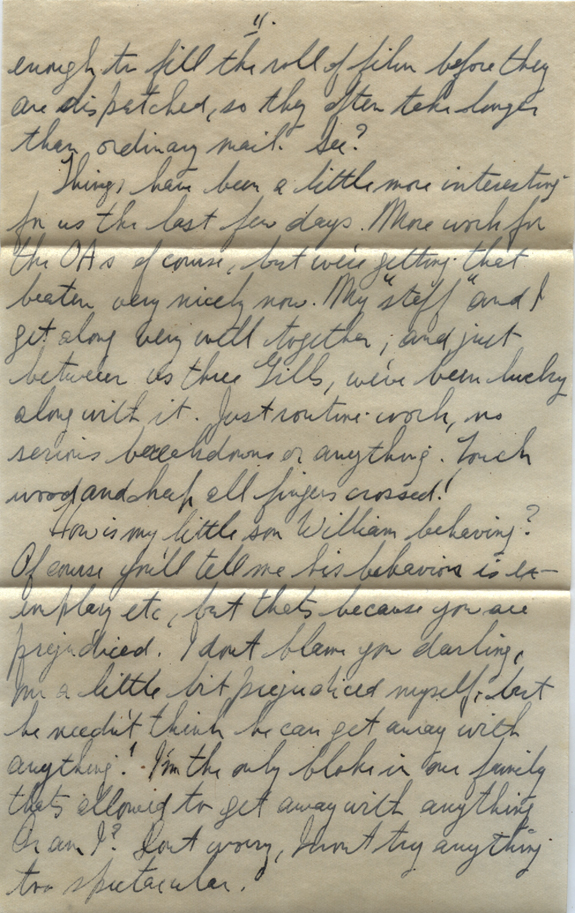 4.
enough to fill the roll of film before they
are dispatched, so they often take longer
than ordinary mail. See?
Things have been a little more interesting
for us the last few days. More work for
the OAs of course, but we're getting that
beaten very nicely now. My "staff" and I
get along very well together; and just
between us three Gills, we've been lucky
along with it. Just routine work, no
serious breakdowns or anything. Touch
wood and keep all fingers crossed!
How is my little son William behaving?
Of course you'll tell me his behavior is ex-
emplary etc, but thats because you are
prejudiced. I dont blame you darling,
Im a little bit prejudiced myself, but
he needn't think he can get away with
anything! I'm the only bloke in our family
thats allowed to get away with anything
Or am I? Dont worry, I wont try anything
too spectacular.